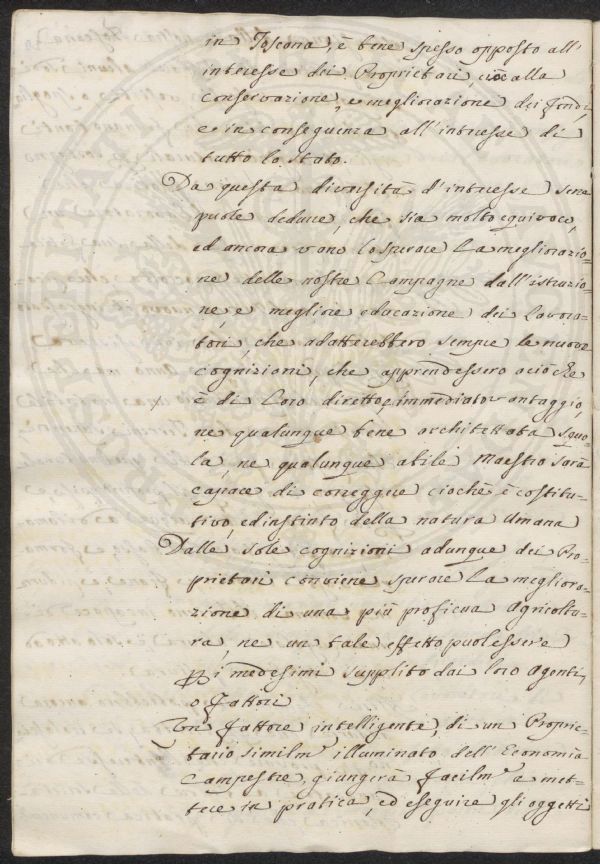 in Toscana, è bene spesso opposto all'
interesse dei Proprietari, cioè alla
conservazione, e megliorazione dei fondi,
e in conseguenza all'interesse di
tutto lo stato.
Da questa diversità d'interesse sene
puole dedurre, che sia molto equivoco,
ed ancora vano lo sperare La megliorazio-
ne delle nostre Campagne dall'istruzio-
ne, e megliore educazione dei Lavora-
tori, che adatterebbero sempre le nuove
cognizioni, che apprendessero a ciò che
è di Loro diretto, e immediato vantaggio,
ne qualunque bene architettata squo-
la, ne qualunque abile Maestro sarà
capace di correggere ciochè è costitu-
tivo, ed instinto della natura Umana
Dalle sole cognizioni adunque dei Pro-
prietari conviene sperare La megliora-
zione di una più proficua Agricoltu-
ra, ne un tale effetto puol essere
i medesimi supplito dai loro Agenti,
o Fattori
Un Fattore intelligente, di un Proprie-
tario similm.e illuminato dell'Economia
Campestre, giungerà facilm.e a met-
tere in pratica, ed eseguire gli oggetti